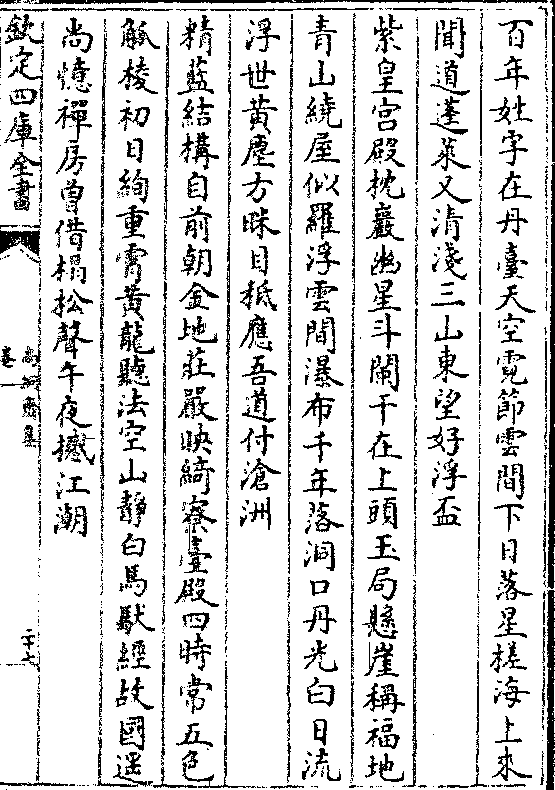 百年姓字在丹臺天空霓節雲間下日落星槎海上來
聞道蓬萊又清淺三山東望好浮盃
紫皇宫殿枕巖幽星斗闌干在上頭玉局懸崖稱福地
青山繞屋似羅浮雲間瀑布千年落洞口丹光白日流
浮世黄塵方眯目秪應吾道付滄洲
精藍結構自前朝金地莊嚴映綺寮臺殿四時常五色
觚棱初日絢重霄黄龍聽法空山靜白馬馱經故國遥
尚憶禪房曾借榻松聲午夜撼江潮
欽定四庫全書
卷一
二十七